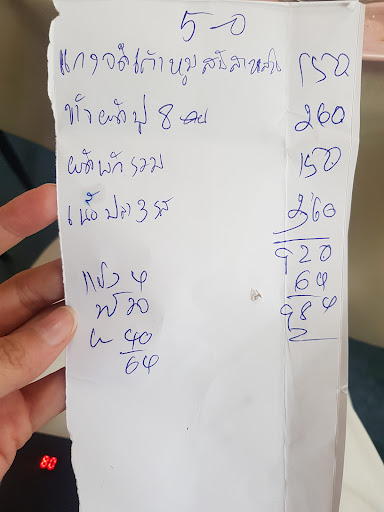 5-0
แกงจืดเต้าหู้หมูสับสาหร่าย 150
ข้าวผัดปู 8 260
ผัดผักรวม 150
เนื้อปลา 3 รส 360
920
64
984
4
20
40
64
80